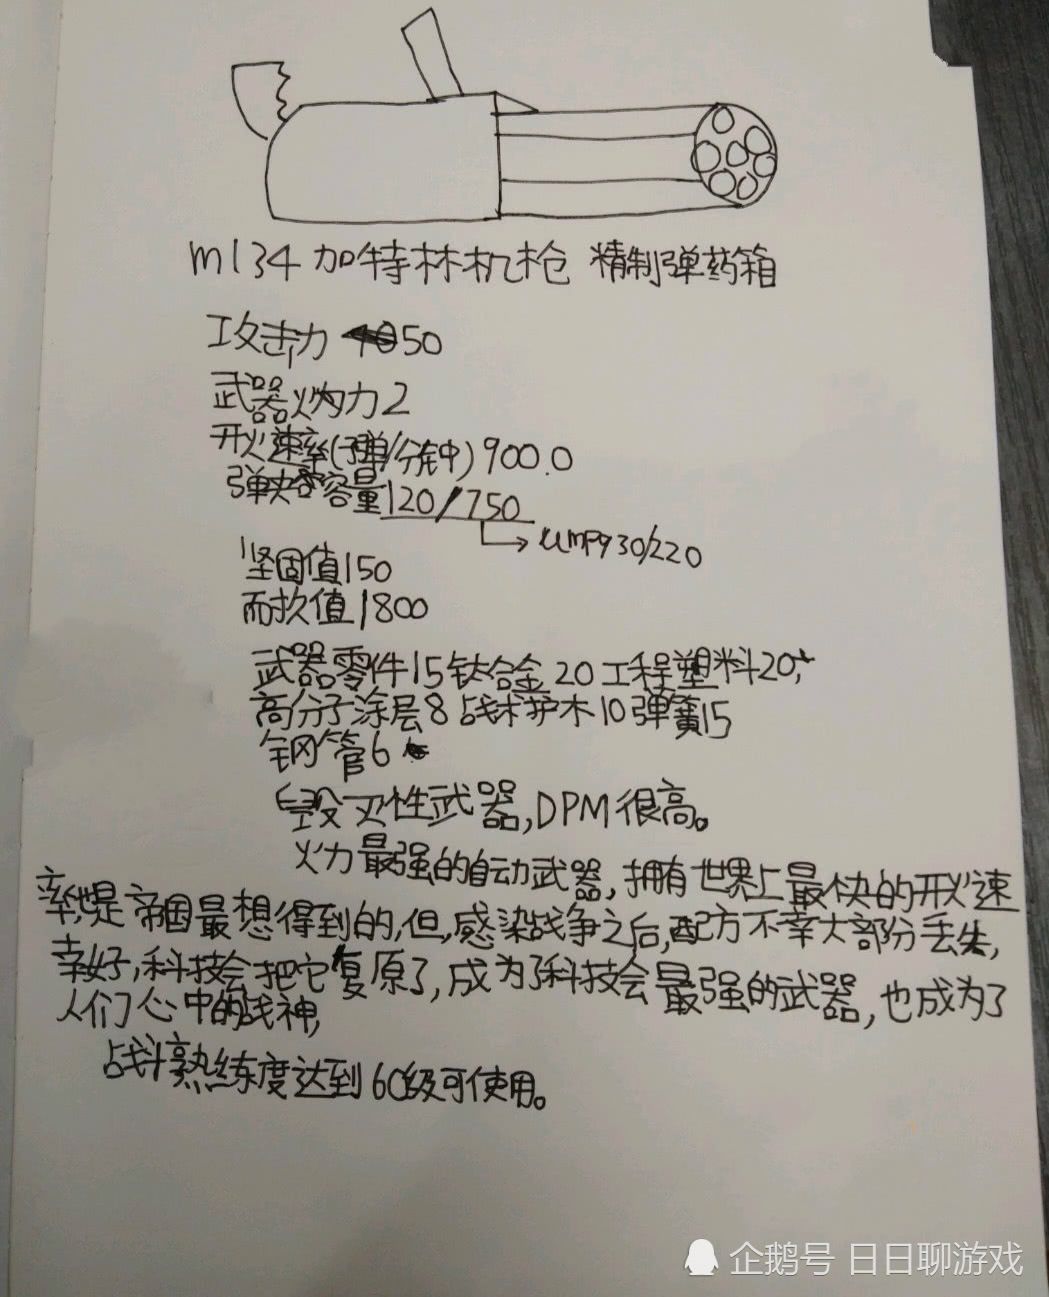 m134 加特林机枪 精制弹药箱
攻击力 50
武器火力2
开火速率(子弹/分钟)900.0
弹夹容量120/750
ump9 30/220
坚固值150
耐抗值1800
武器零件15钛合金20工程塑料20,
高分子涂层8战术护木10弹簧15
钢管6
毁灭性武器,DPM很高。
火力最强的自动武器,拥有世界上最快的开火速
率,是帝国最想得到的,但,感染战争之后,配方不幸大部分丢失,
幸好,科技会把它复原了,成为了科技会最强的武器,也成为了
人们心中的战神,
战斗熟练度达到60级可使用。
企鹅号 日日聊游戏